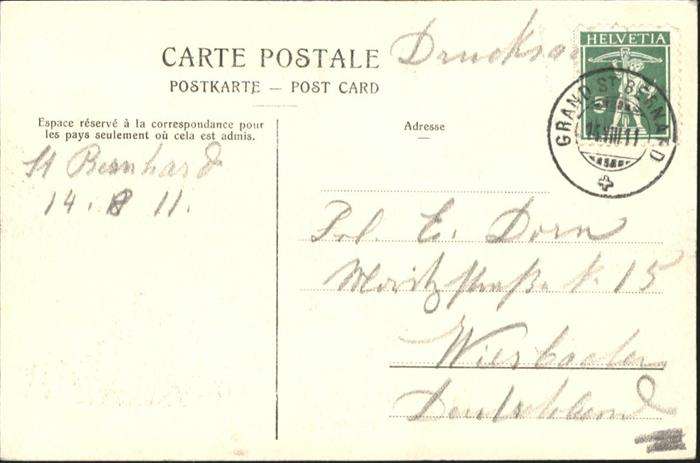 CARTE POSTALE
POSTKARTE — POST CARD
Drucksa
HELVETIA
5
GRAND ST BERNARD
14.VIII.11
Espace réservé à la correspondance pour
les pays seulement où cela est admis.
Adresse
St Bernhard
14. 8 11.
E. Dorn
Moritzstraße 15
Wiesbaden
Deutschland